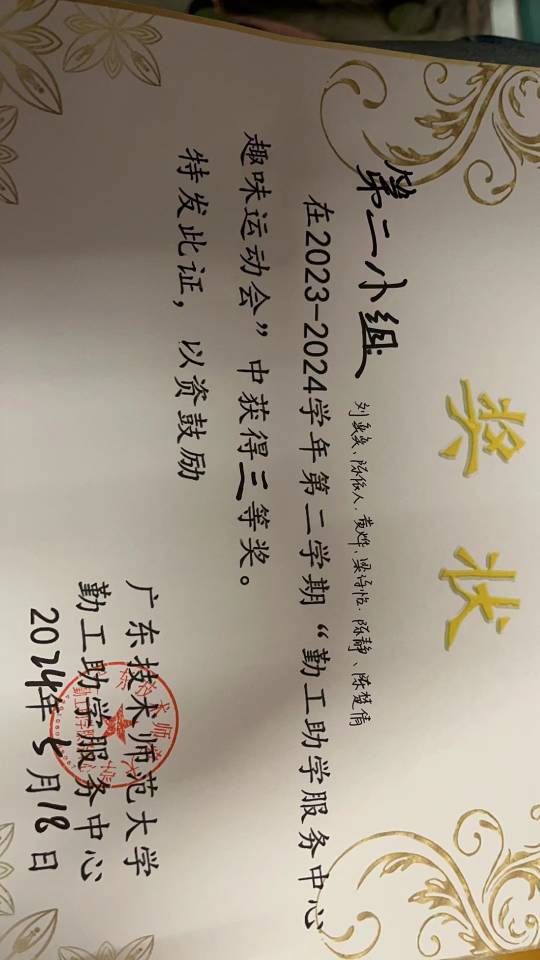 奖状
第二小组 刘奕奕、陈依人、黄烨、梁诗怡、陈静、陈楚倩
在2023-2024学年第二学期“勤工助学服务中心
趣味运动会”中获得三等奖。
特发此证，以资鼓励
广东技术师范大学
勤工助学服务中心
2024年5月18日